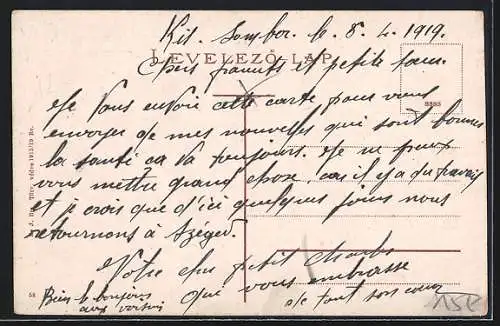 Kis. Sombor. le. 8. 4. 1919.
LEVELEZŐ-LAP
Chers parents et petite sœur.
Je vous envoie cette carte pour vous
envoyer de mes nouvelles qui sont bonnes
la santé ca va toujours. Je ne peux
vous mettre grand chose, car il y a du travail
et je crois que d'ici quelques jours nous
retournons à Szeged.
Votre cher petit Charles
qui vous embrasse
de tout son cœur
Bien le bonjour
aux voisins
58